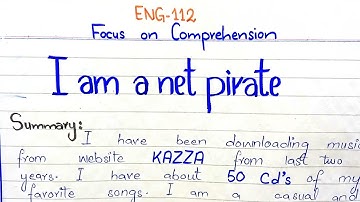 ENG-112
Focus on Comprehension
I am a net pirate
Summary:
I have been downloading music
from website KAZZA from last two
years. I have about 50 Cd's of my
favorite songs. I am a casual and